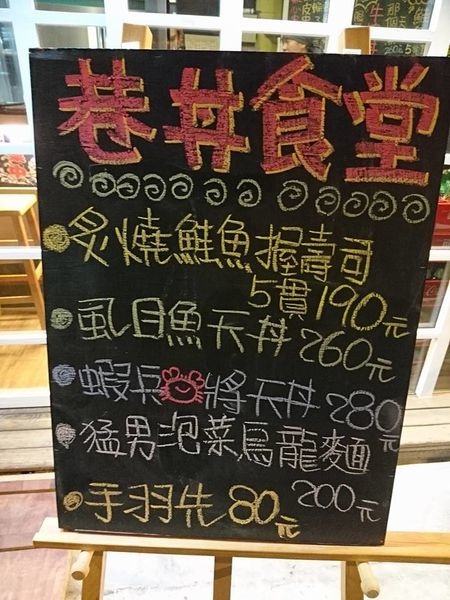 巷丼食堂
炙燒鮭魚握壽司
5貫190元
虱目魚天丼260元
蝦兵將天丼280元
猛男泡菜烏龍麵
200元
手羽先80元